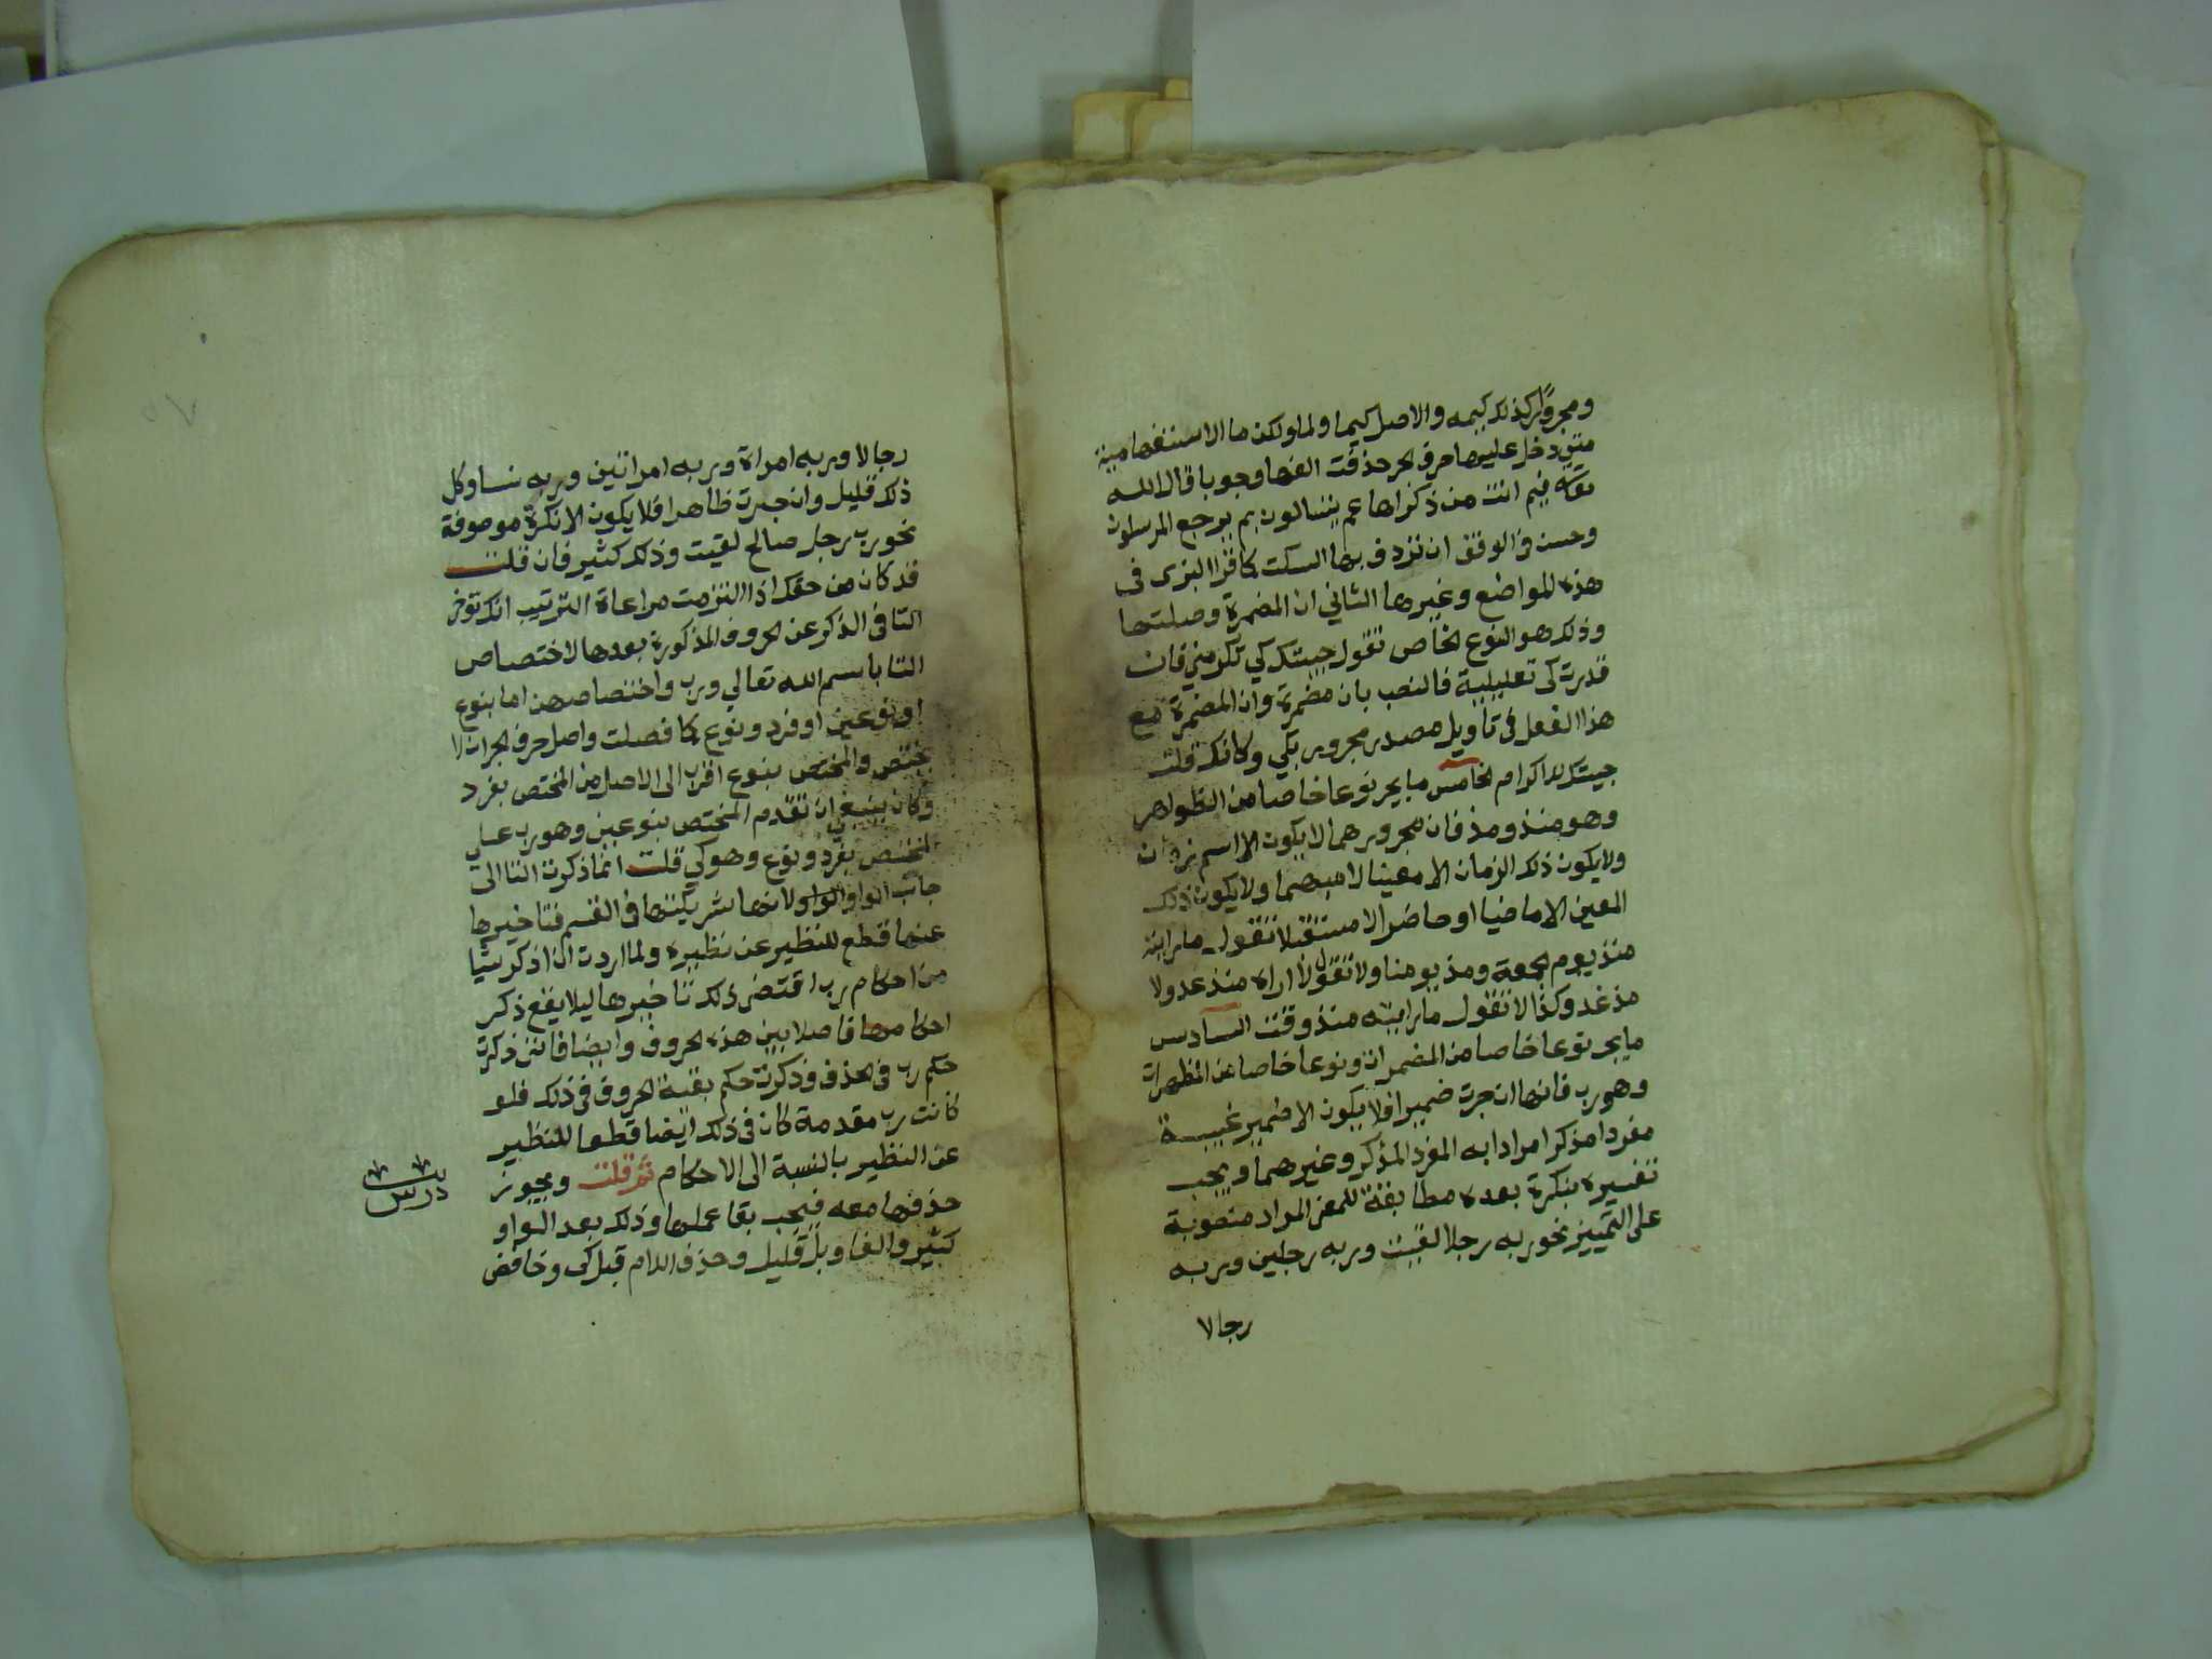 ومجرور كذلك كيمه والاصل كيما ولما ولكن ما الاستفهامية
متى دخل عليها حرف الجر حذفت الفها وجوبا قال الله
تعالى فيم انت من ذكراها عم يتسالون بم يرجع المرسلون
وحسن في الوقف ان تردف بها السكت كما قرا البزى فى
هذه المواضع وغيرها الثاني ان المضمرة وصلتها
وذلك هو النوع الخاص تقول جيتك كي تكرمني فان
قدرت كى تعليلية فالنصب بان مضمرة وان المضمرة مع
هذا الفعل فى تاويل مصدر مجرور بكي وكانك قلت
جيتك للاكرام الخامس ما يجر نوعا خاصا من الظواهر
وهو منذ ومذ فان مجرورهما لا يكون الا اسم زمان
ولا يكون ذلك الزمان الا معينا لا مبهما ولا يكون ذلك
المعين الا ماضيا او حاضرا لا مستقبلا تقول ما رايته
منذ يوم الجمعة ومذ يومنا ولا تقول لا اراه منذ غد ولا
مذ غد وكذا لا تقول ما رايته منذ وقت السادس
ما يجر نوعا خاصا من المضمرات ونوعا خاصا من المظهرات
وهو رب فانها ان جرت ضميرا فلا يكون الا ضمير غيبة
مفردا مذكرا مرادا به المفرد المذكر وغيرهما ويجب
تفسيره بنكرة بعده مطابقة للمعنى المراد منصوبة
على التمييز نحو ربه رجلا لقيت وربه رجلين وربه
رجالا
رجالا وربه امراة وربه امراتين وربه نسا وكل
ذلك قليل وان جرت ظاهرا فلا يكون الا نكرة موصوفة
نحو رب رجل صالح لقيت وذلك كثير فان قلت
قد كان من حقك اذا التزمت مراعاة الترتيب انك توخر
التا فى الذكر عن الحروف المذكورة بعدها لاختصاص
التا باسم الله تعالى ورب واختصاصهن اما بنوع
او نوعين او فرد ونوع كما فصلت واصل حرف الجر ان لا
يختص والمختص بنوع اقرب الى الاصل من المختص بفرد
وكان ينبغي ان تقدم المختص بنوعين وهو رب على
المختص بفرد ونوع وهو كي قلت انما ذكرت التا الى
جانب الواو لانها شريكتها فى القسم فتاخيرها
عنها قطع للنظير عن نظيره ولما اردت ان اذكر شيا
من احكام رب اقتضى ذلك تاخيرها ليلا يقع ذكر
احكامها فاصلا بين هذه الحروف وايضا فاننى ذكرت
حكم رب فى الحذف وذكرت حكم بقية الحروف فى ذلك فلو
كانت رب مقدمة كان فى ذلك ايضا قطعا للنظير
عن النظير بالنسبة الى الاحكام ثم قلت ويجوز
درس
حذفها معه فيجب بقا عملها وذلك بعد الواو
كثير والفا وبل قليل وحذف اللام قبل كى وخافض